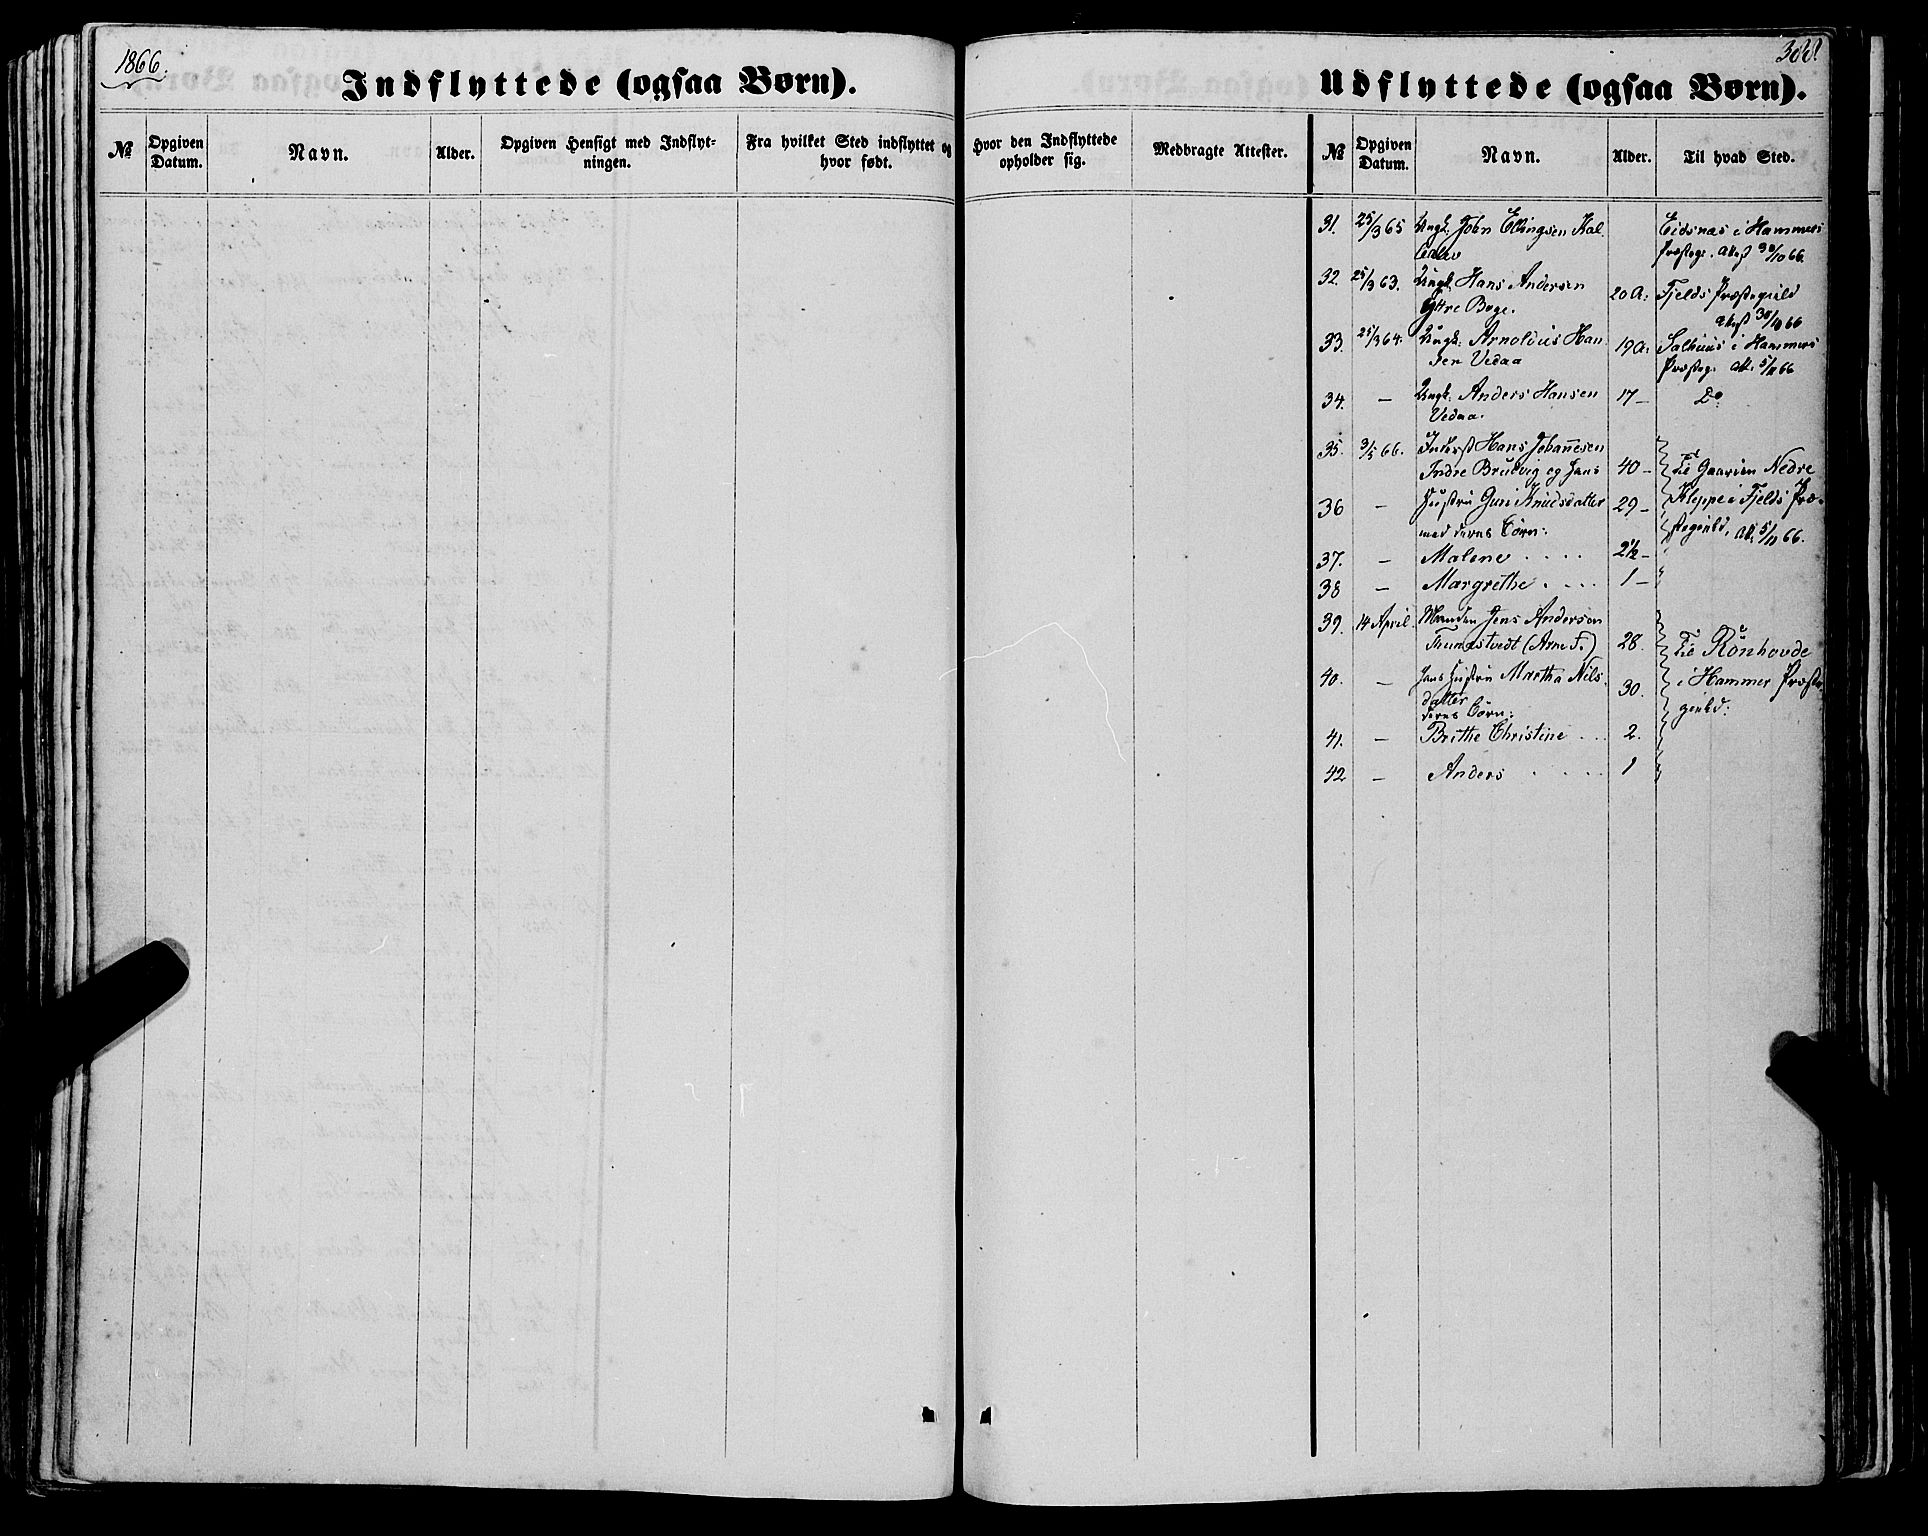 1866.
388
Indflyttede (ogsaa Børn).
Udflyttede (ogsaa Børn).
№
Opgiven Datum.
Navn.
Alder.
Opgiven Hensigt med Indflyt-
ningen.
Fra hvilket Sted indflyttet og
hvor født.
Hvor den Indflyttede
opholder sig.
Medbragte Attester.
№
Opgiven Datum.
Navn.
Alder.
Til hvad Sted.
31. 25/3 65 Ungk. John Ellingsen Kal Eidsnæs i Hammers
Præsteg. Attest 30/10 66.
32. 25/3 63. Ungk. Hans Andersen 20 A. Fjelds Præstegield
Yttre Boge. Attest 30/10 66
33. 25/3 64. Ungk. Arnoldus Han 19 A. Salhuus i Hammers
sen Vedaa Præsteg. Att. 5/11 66
34. – Ungk. Anders Hansen 17 – Do
Vedaa.
35. 3/5 66. Inderst Hans Johannesen
Indre Bruvig og hans 40 – Til Gaarden Nedre
36 – Hustru Guri Knudsdatter 29 – Kleppe i Fjelds Præ-
med deres Børn: stegield, Att. 5/11 66.
37. – Malene . . . . 2½ –
38 – Margrethe . . . . 1 –
39. 14 April. Manden Jens Andersen
Thunestvedt (Arne F.) 28. Til Rönhovde
40. – hans Hustru Martha Nils- 30. i Hammer Præste
datter gield.
deres Børn:
41. – Brithe Christine . . . 2.
42 – Anders . . . . . 1